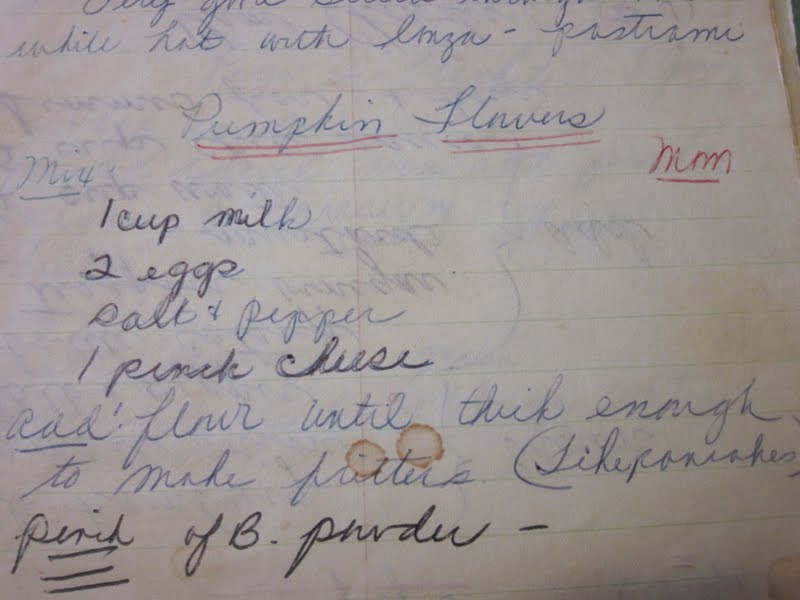 Very good
while hot with lonza - pastrami
Pumpkin Flowers
Mom
Mix:
1 cup milk
2 eggs
salt + pepper
1 pinch cheese
add: flour until thick enough
to make fritters (Like pancakes)
pinch of B. powder -